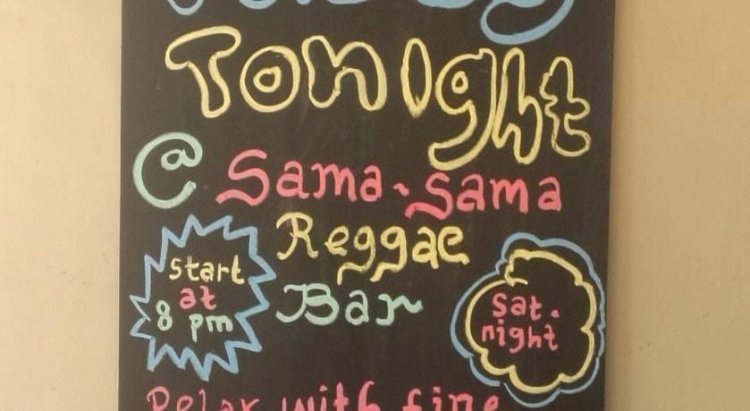 Tonight
@ Sama-Sama
Reggae
Bar
start
at
8 pm
Sat.
night
Relax with fine